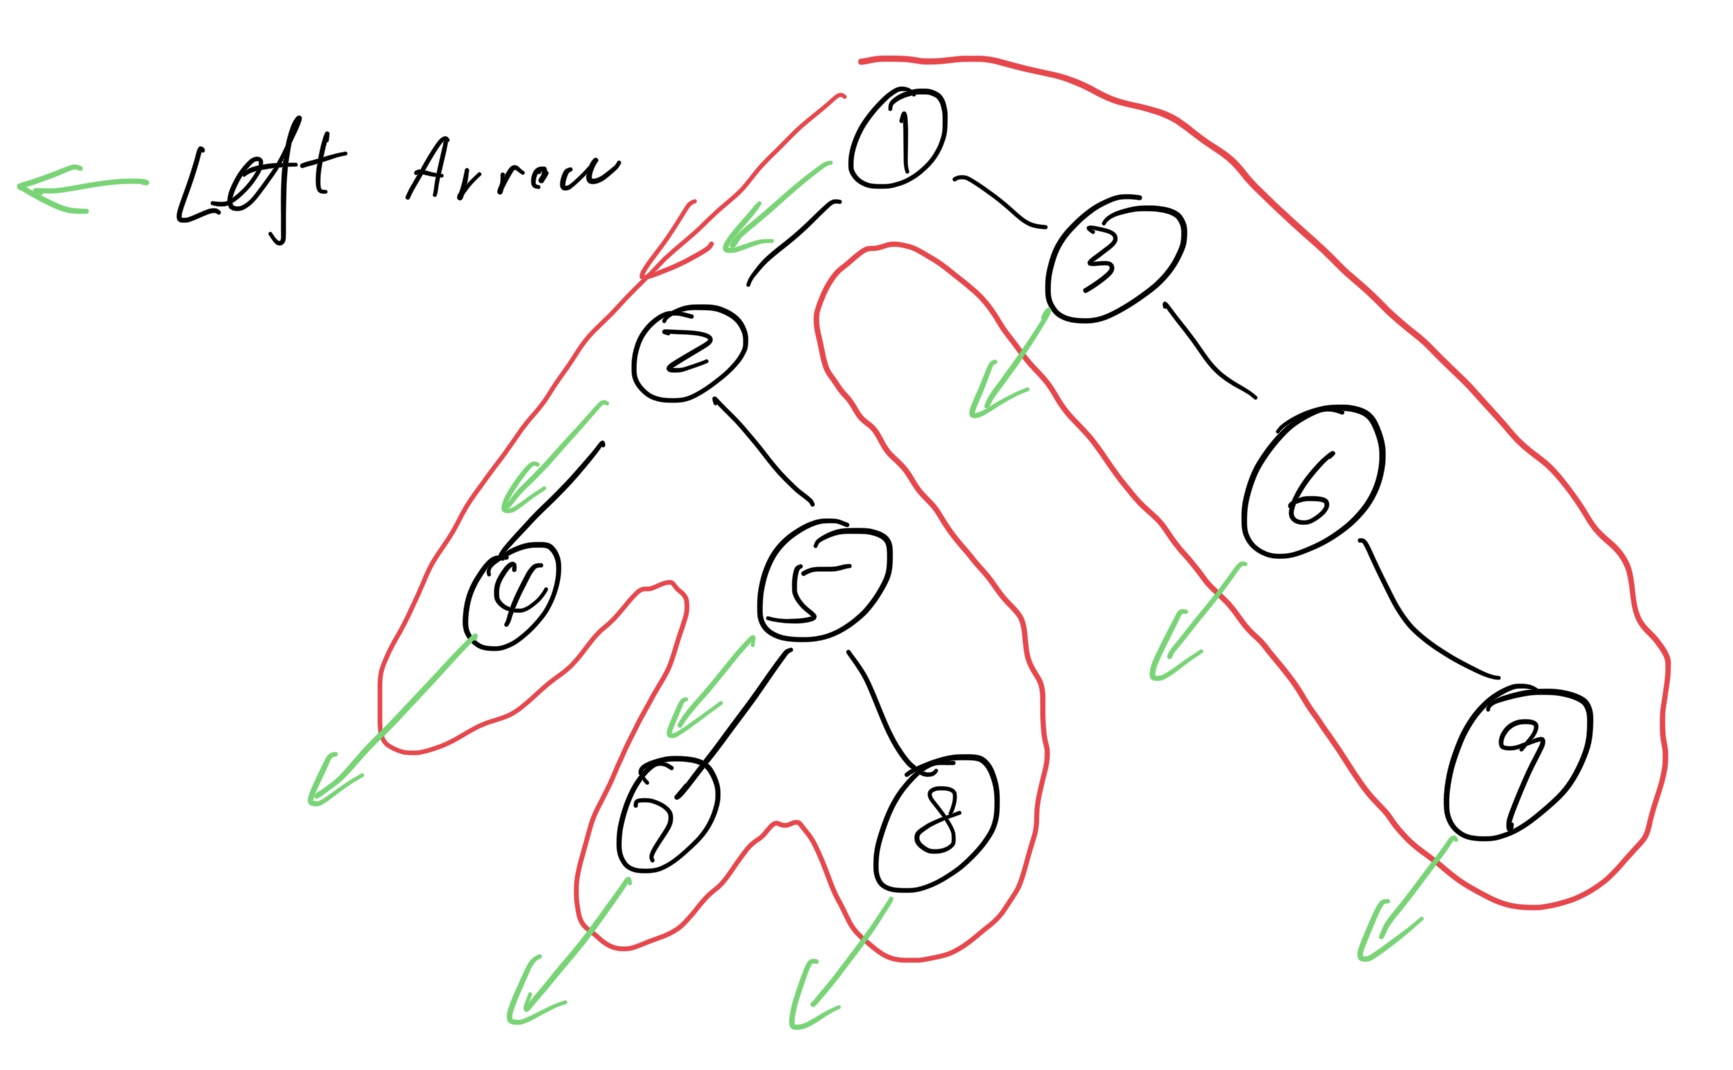 Left Arrow
1
3
2
6
4
5
9
7
8